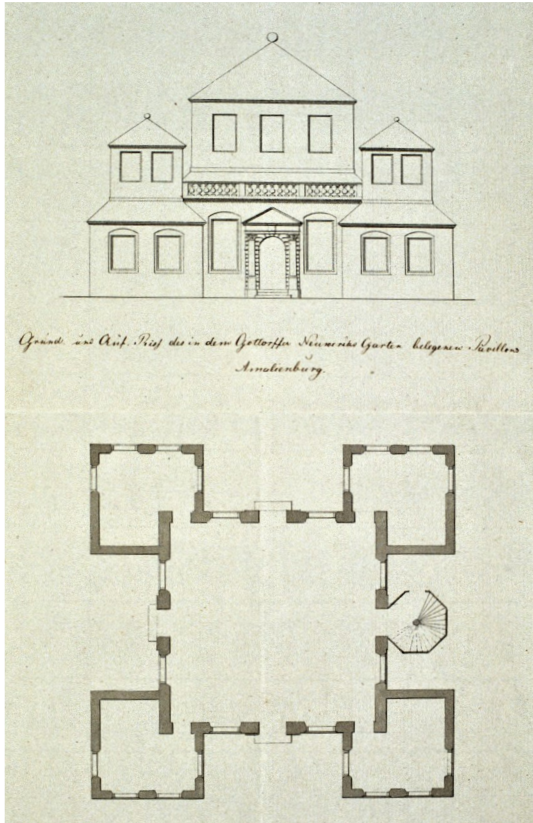 Grund und Auf-Riss des in dem Gottorffer Neuwerks Garten belegenen Pavillons
Amalienburg.